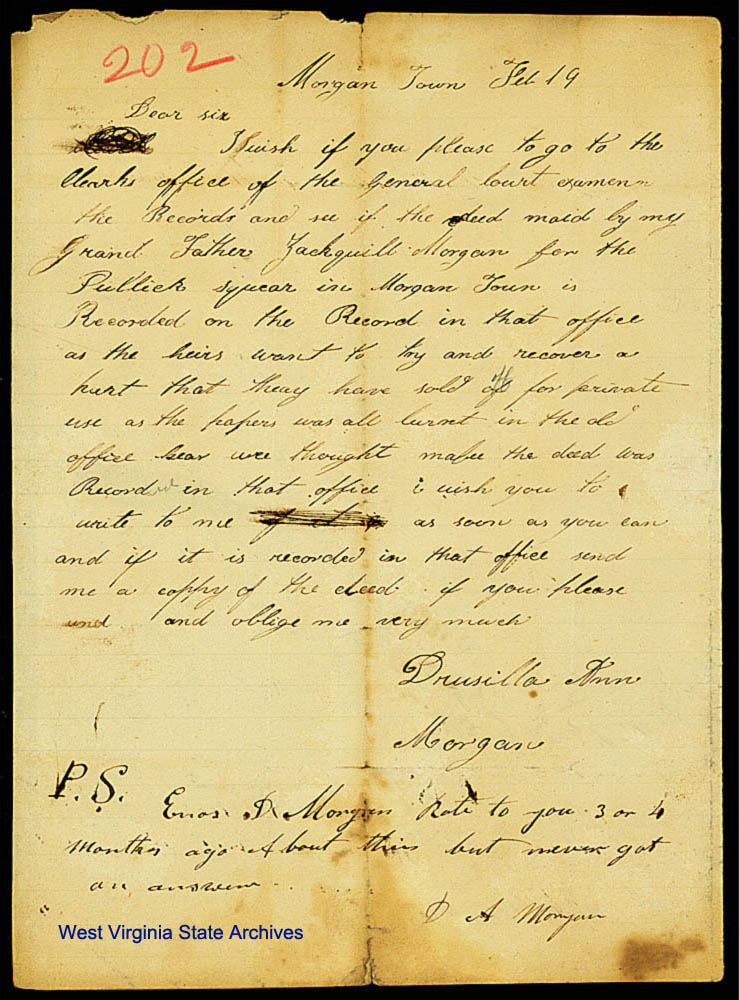 202
Morgan Town Feb 19
Dear sir
I wish if you please to go to the
Clearks office of the General Court examen
the Records and see if the deed maid by my
Grand Father Zackquill Morgan for the
Publick squear in Morgan Town is
Recorded on the Record in that office
as the heirs want to try and recover a
part that theay have sold off for private
use as the papers was all burnt in the old
office hear wee thought mabee the deed was
Recorded in that office i wish you to
write to me as soon as you can
and if it is recorded in that office send
me a coppy of the deed if you please
and and oblige me very much
Drusilla Ann
Morgan
P.S.
Enos D Morgan Rote to you 3 or 4
months ago About this but never got
an answer
D A Morgan
West Virginia State Archives